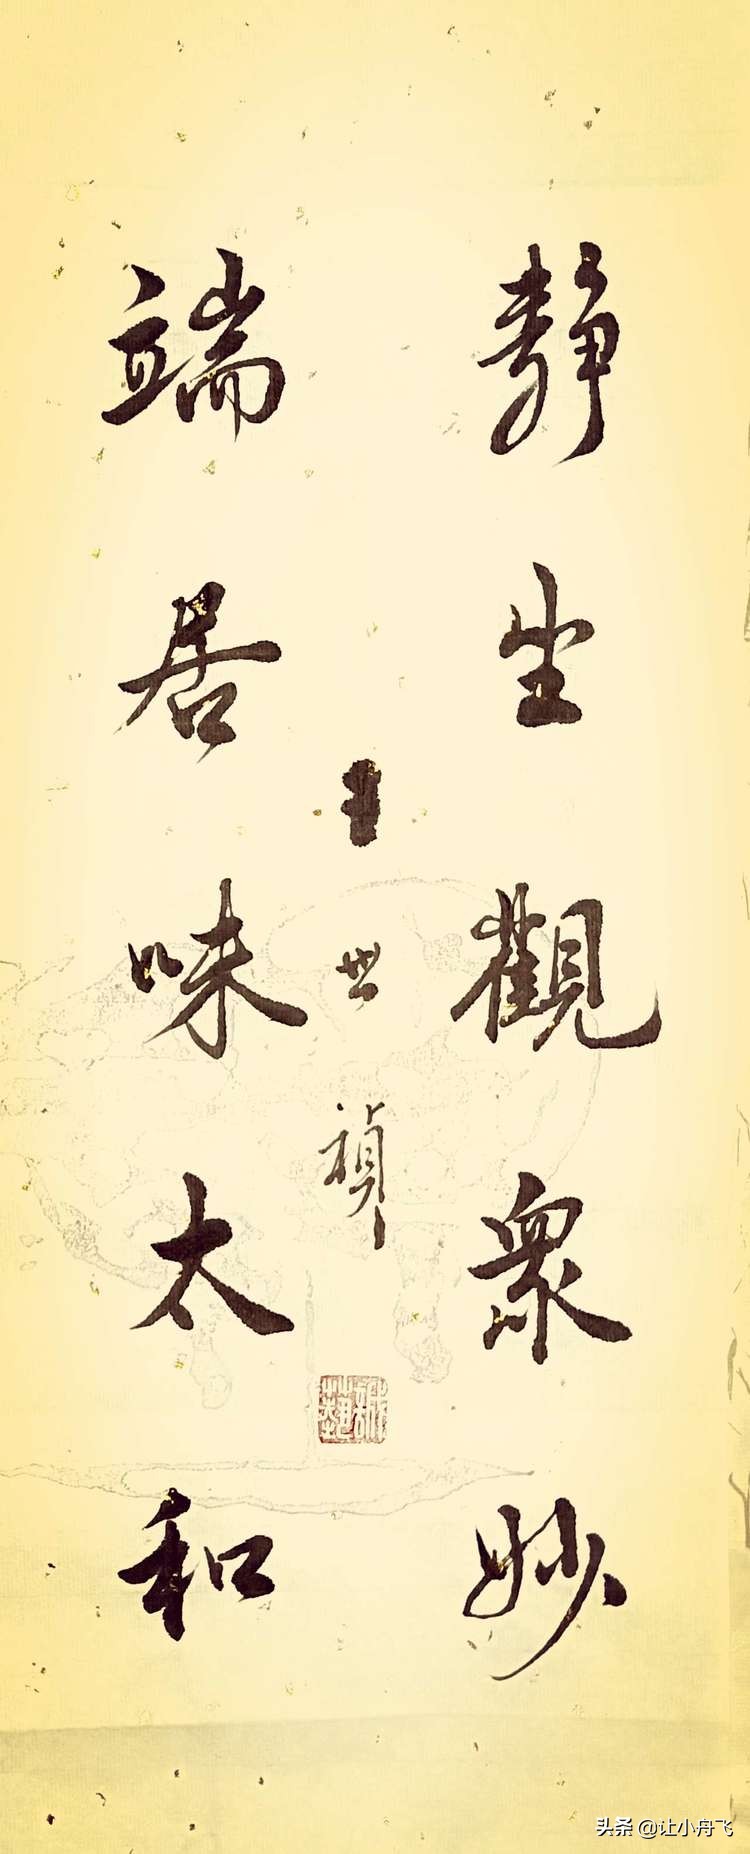 靜坐觀衆妙
端居味太和
王世禎
誠藝
头条 @让小舟飞